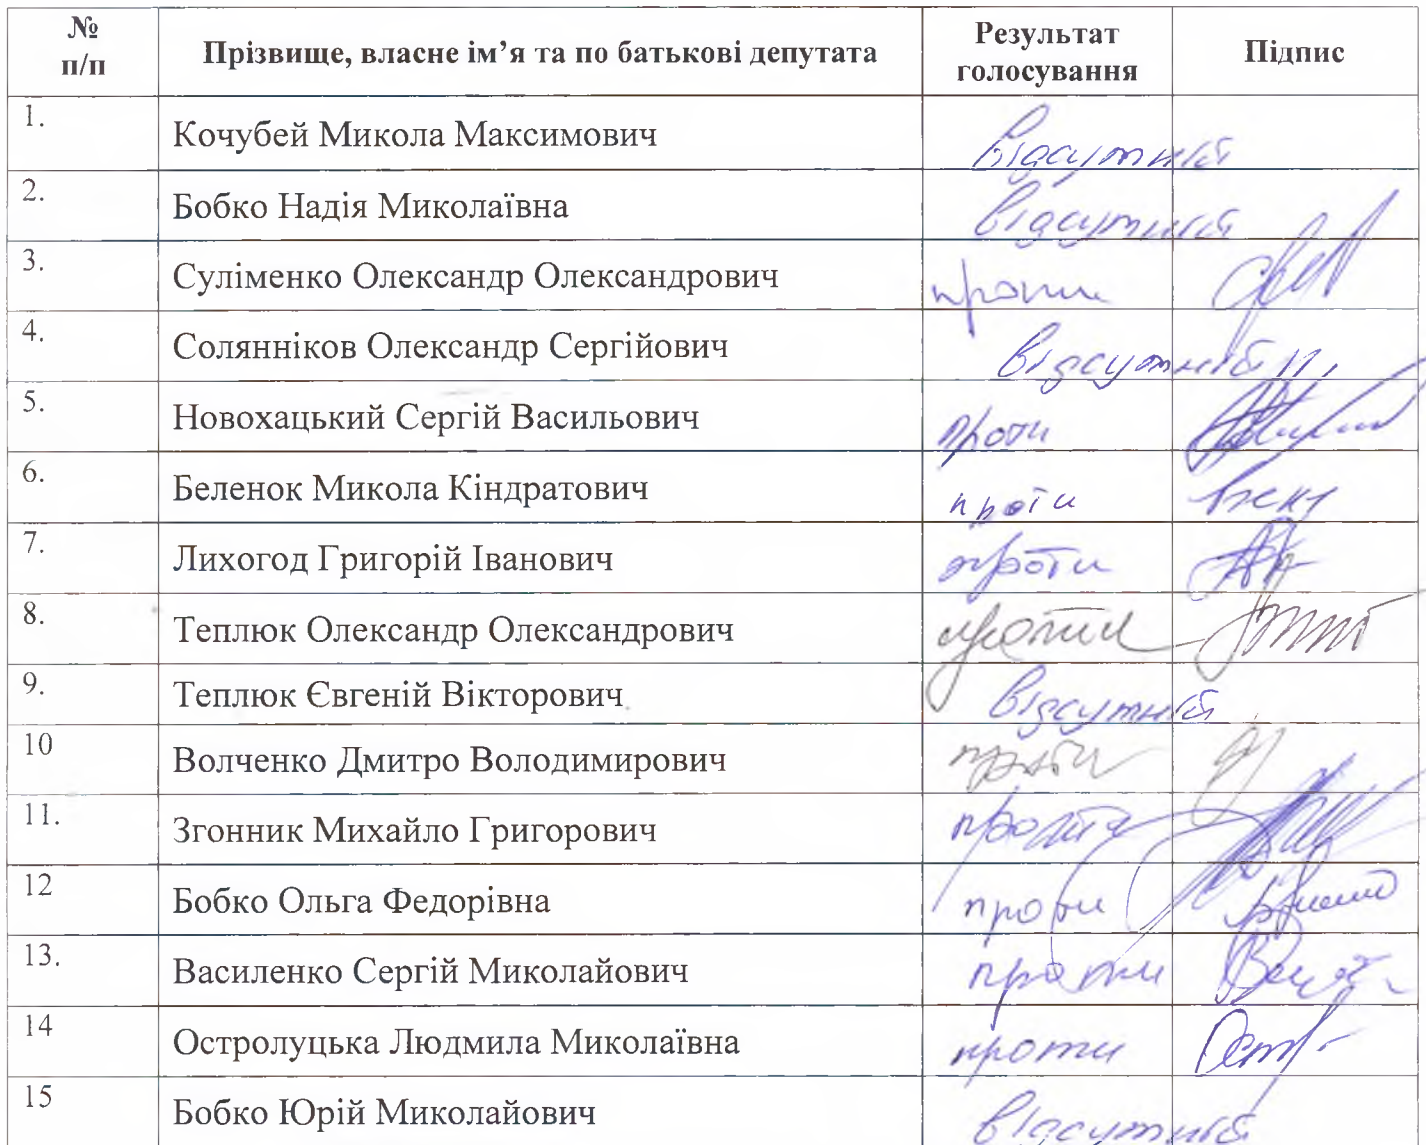 № п/п Прізвище, власне ім’я та по батькові депутата Результат голосування Підпис
1. Кочубей Микола Максимович відсутній
2. Бобко Надія Миколаївна відсутній
3. Суліменко Олександр Олександрович проти
4. Солянніков Олександр Сергійович відсутній
5. Новохацький Сергій Васильович проти
6. Беленок Микола Кіндратович проти
7. Лихогод Григорій Іванович проти
8. Теплюк Олександр Олександрович проти
9. Теплюк Євгеній Вікторович відсутній
10 Волченко Дмитро Володимирович проти
11. Згонник Михайло Григорович проти
12 Бобко Ольга Федорівна проти
13. Василенко Сергій Миколайович проти
14 Остролуцька Людмила Миколаївна проти
15 Бобко Юрій Миколайович відсутній